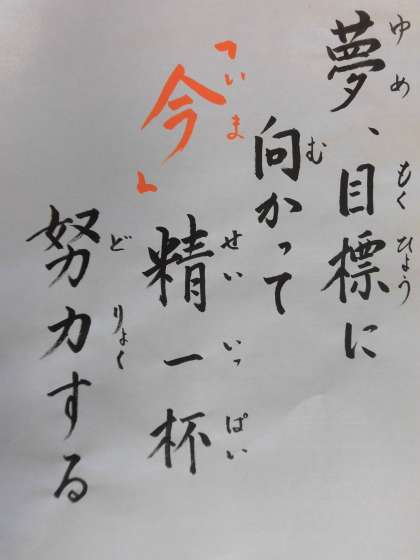 夢、目標に
ゆめ もくひょう
向かって
む
「今」精一杯
いま せいいっぱい
努力する
どりょく